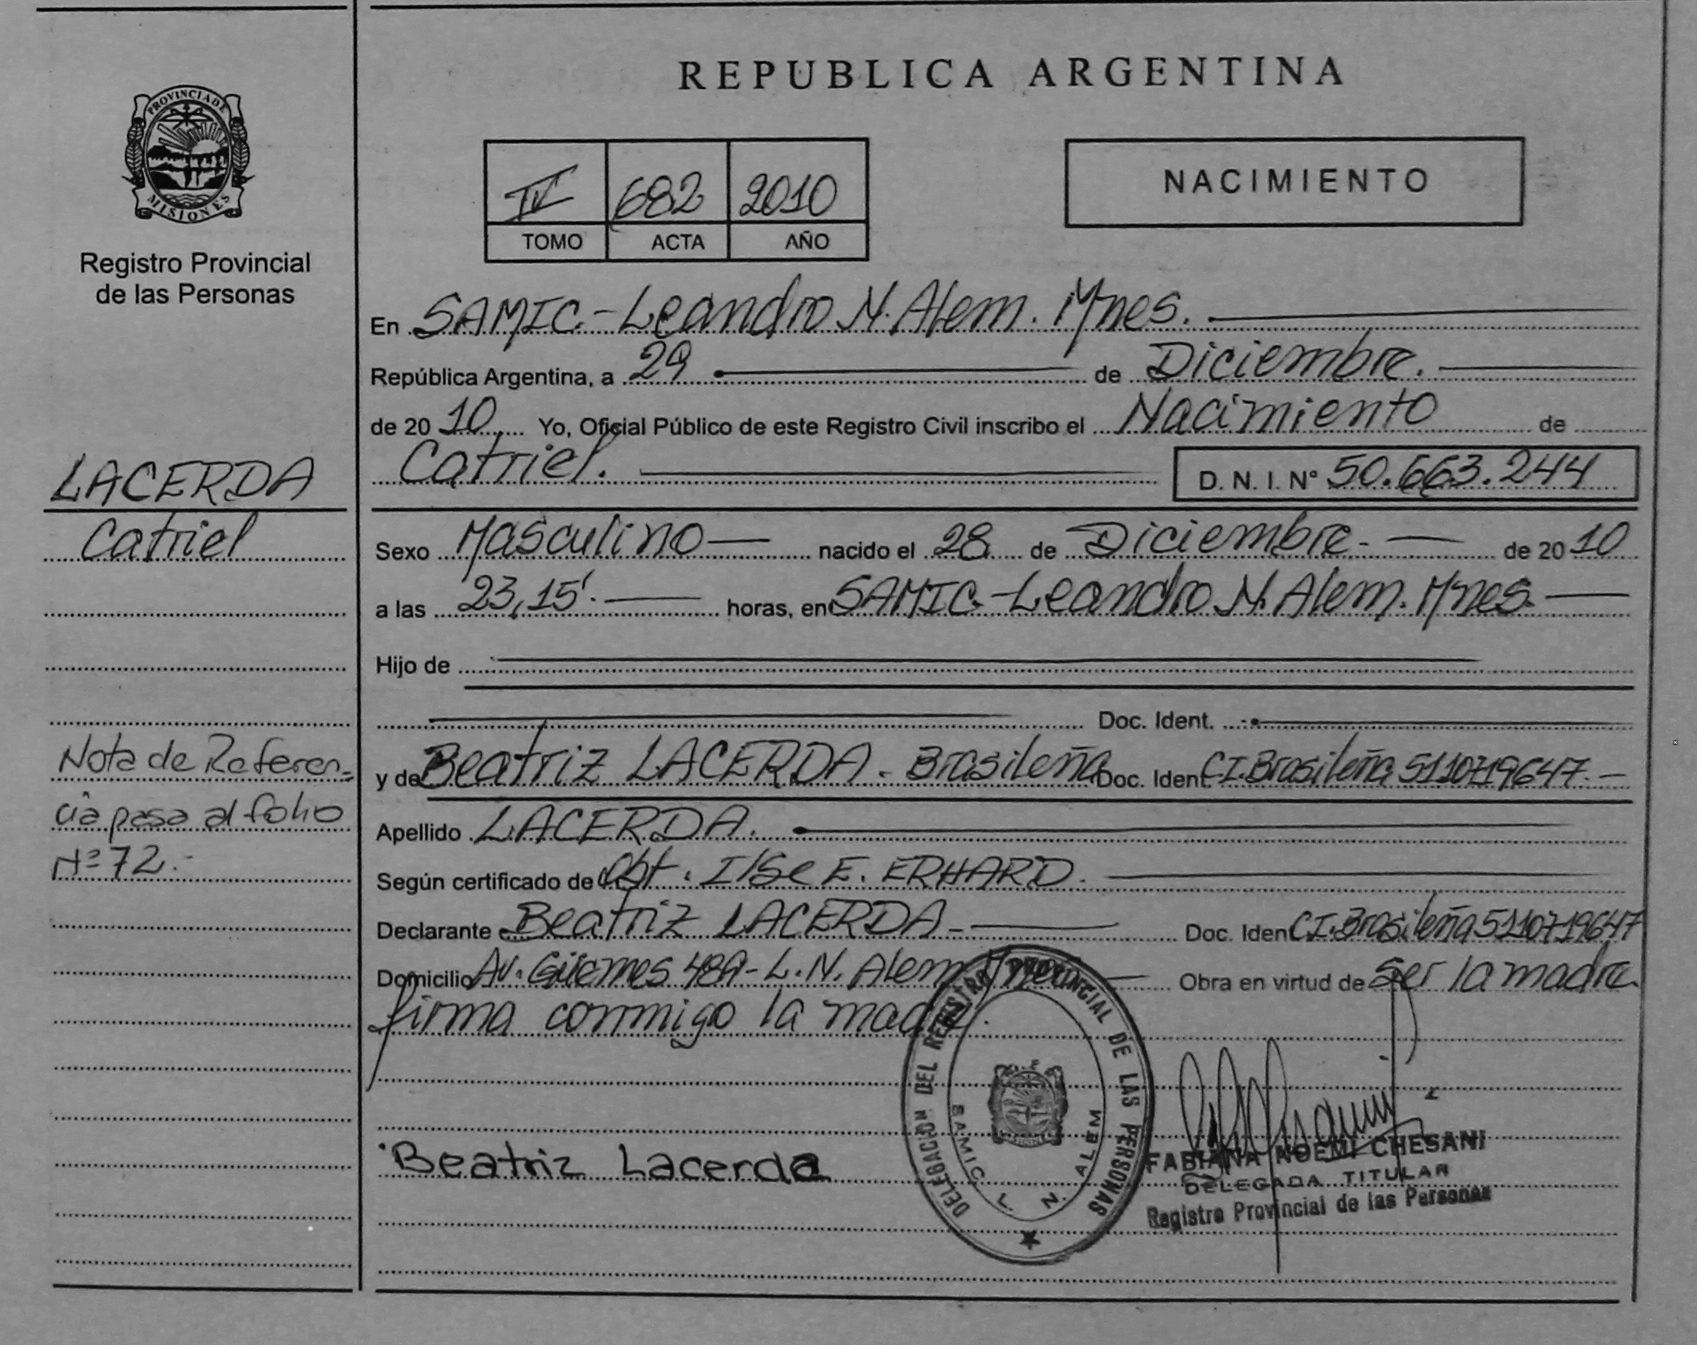 REPUBLICA ARGENTINA
PROVINCIA DE MISIONES
Registro Provincial
de las Personas
IV 682 2010
TOMO ACTA AÑO
NACIMIENTO
En SAMIC.-Leandro N. Alem. Mnes.
República Argentina, a 29 de Diciembre.
de 2010 Yo, Oficial Público de este Registro Civil inscribo el Nacimiento de
Catriel. D. N. I. N° 50.663.244
LACERDA
Catriel
Sexo Masculino nacido el 28 de Diciembre.- de 2010
a las 23,15'. horas, en SAMIC.-Leandro N. Alem. Mnes.
Hijo de
Doc. Ident.
y de Beatriz LACERDA. Brasileña Doc. Ident. C.I. Brasileña 5110719647.-
Apellido LACERDA.
Según certificado de Obt. Ilse E. ERHARD.
Declarante Beatriz LACERDA.- Doc. Iden C.I. Brasileña 5110719647
Domicilio Av. Güemes 489- L.N. Alem Mnes Obra en virtud de ser la madre.
firma conmigo la madre.
Nota de Referen-
cia pasa al folio
Nº 72.-
Beatriz Lacerda
DELEGACION DEL REGISTRO PROVINCIAL DE LAS PERSONAS
SAMIC. L. N. ALEM
FABIANA NOEMI CHESANI
DELEGADA TITULAR
Registro Provincial de las Personas